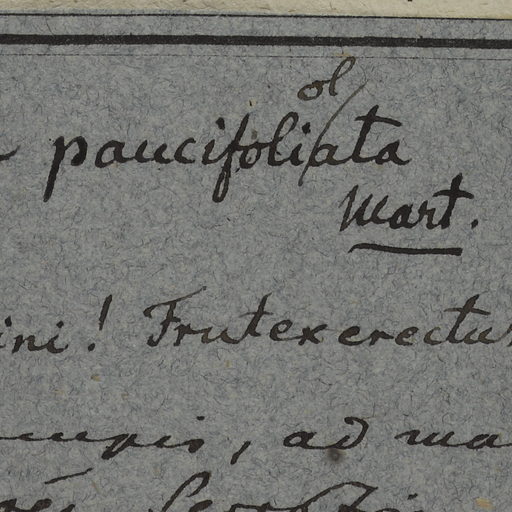 ol
paucifoliata
Mart.
ini! Frutex erectus
, ad ma